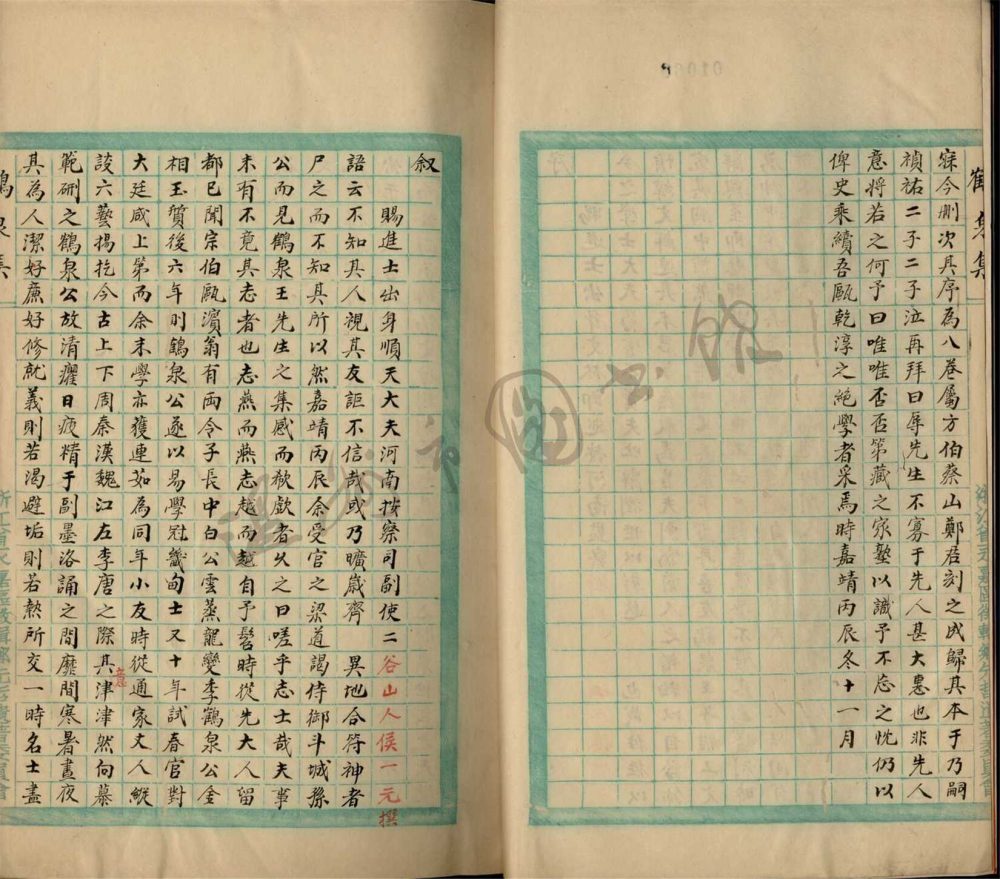 鶴泉集
寐今刪次其序為八卷屬方伯蔡山鄭君刻之成歸其本于乃嗣
禎祐二子二子泣再拜曰辱先生不寡于先人甚大惠也非先人
意將若之何予曰唯唯否否第藏之家塾以識予不忘之忱仍以
俾史乘續吾甌乾淳之絕學者采焉時嘉靖丙辰冬十一月
叙
賜進士出身順天大夫河南按察司副使二谷山人侯一元撰
語云不知其人視其友詎不信哉或乃曠歲齊 異地合符神者
尸之而不知其所以然嘉靖丙辰余受官之梁道謁侍御斗城孫
公而見鶴泉王先生之集感而欷歔者久之曰嗟乎志士哉夫事
未有不竟其志者也志燕而燕志越而越自予髫時從先大人留
都已聞宗伯甌濱翁有兩令子長中白公雲蒸龍變季鶴泉公金
相玉質後六年則鶴泉公遂以易學冠畿甸士又十年試春官對
大廷咸上第而余末學亦獲連茹為同年小友時從通家丈人縱
談六藝揚扢今古上下周秦漢魏江左李唐之際其津津然向慕
意
範硎之鶴泉公故清癯日疲精于副墨洛誦之間靡間寒暑晝夜
其為人潔好廉好修就義則若渴避垢則若熱所交一時名士盡
鶴泉集